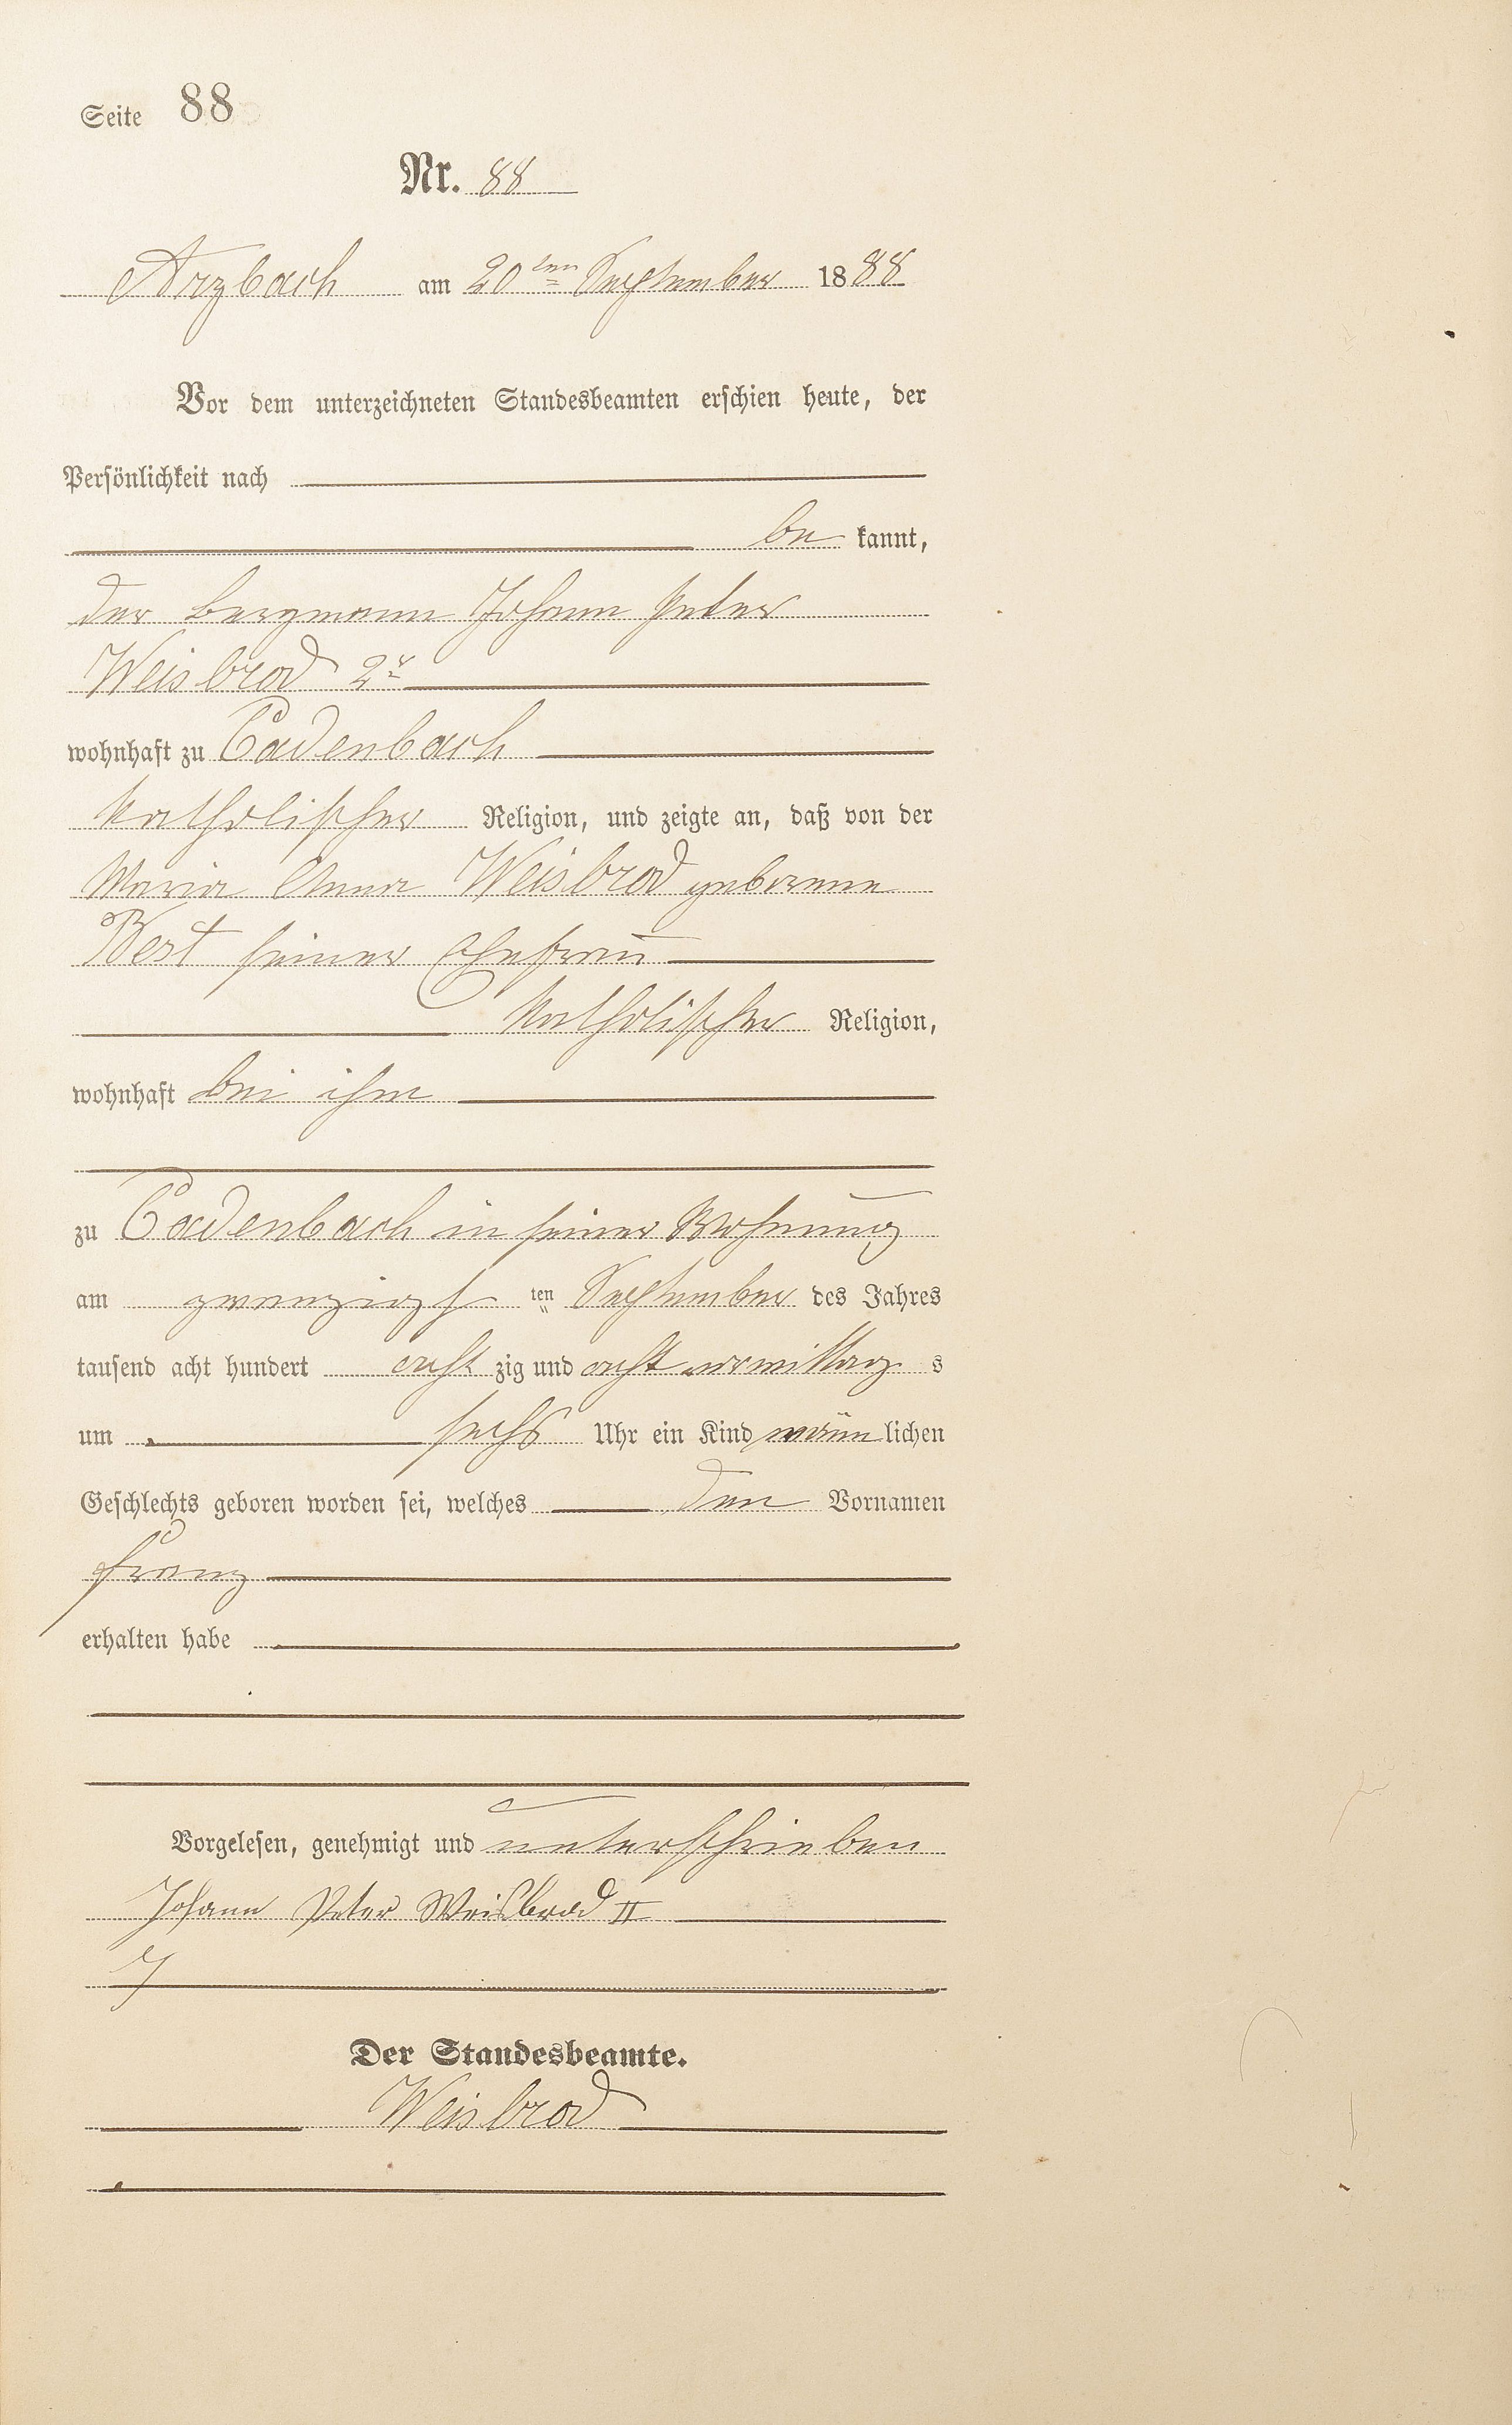 Seite 88
Nr. 88
Arzbach am 20ten September 1888
Vor dem unterzeichneten Standesbeamten erschien heute, der
Persönlichkeit nach
be kannt,
der Bergmann Johann Peter
Weisbrod 2r
wohnhaft zu Cadenbach
katholischer Religion, und zeigte an, daß von der
Maria Anna Weisbrod geborene
Best seiner Ehefrau
katholischer Religion,
wohnhaft bei ihm
zu Cadenbach in seiner Wohnung
am zwanzigs ten September des Jahres
tausend acht hundert acht zig und acht vormittag s
um sechs Uhr ein Kind männ lichen
Geschlechts geboren worden sei, welches den Vornamen
Franz
erhalten habe
Vorgelesen, genehmigt und unterschrieben
Johann Peter Weisbrod II
Der Standesbeamte.
Weisbrod